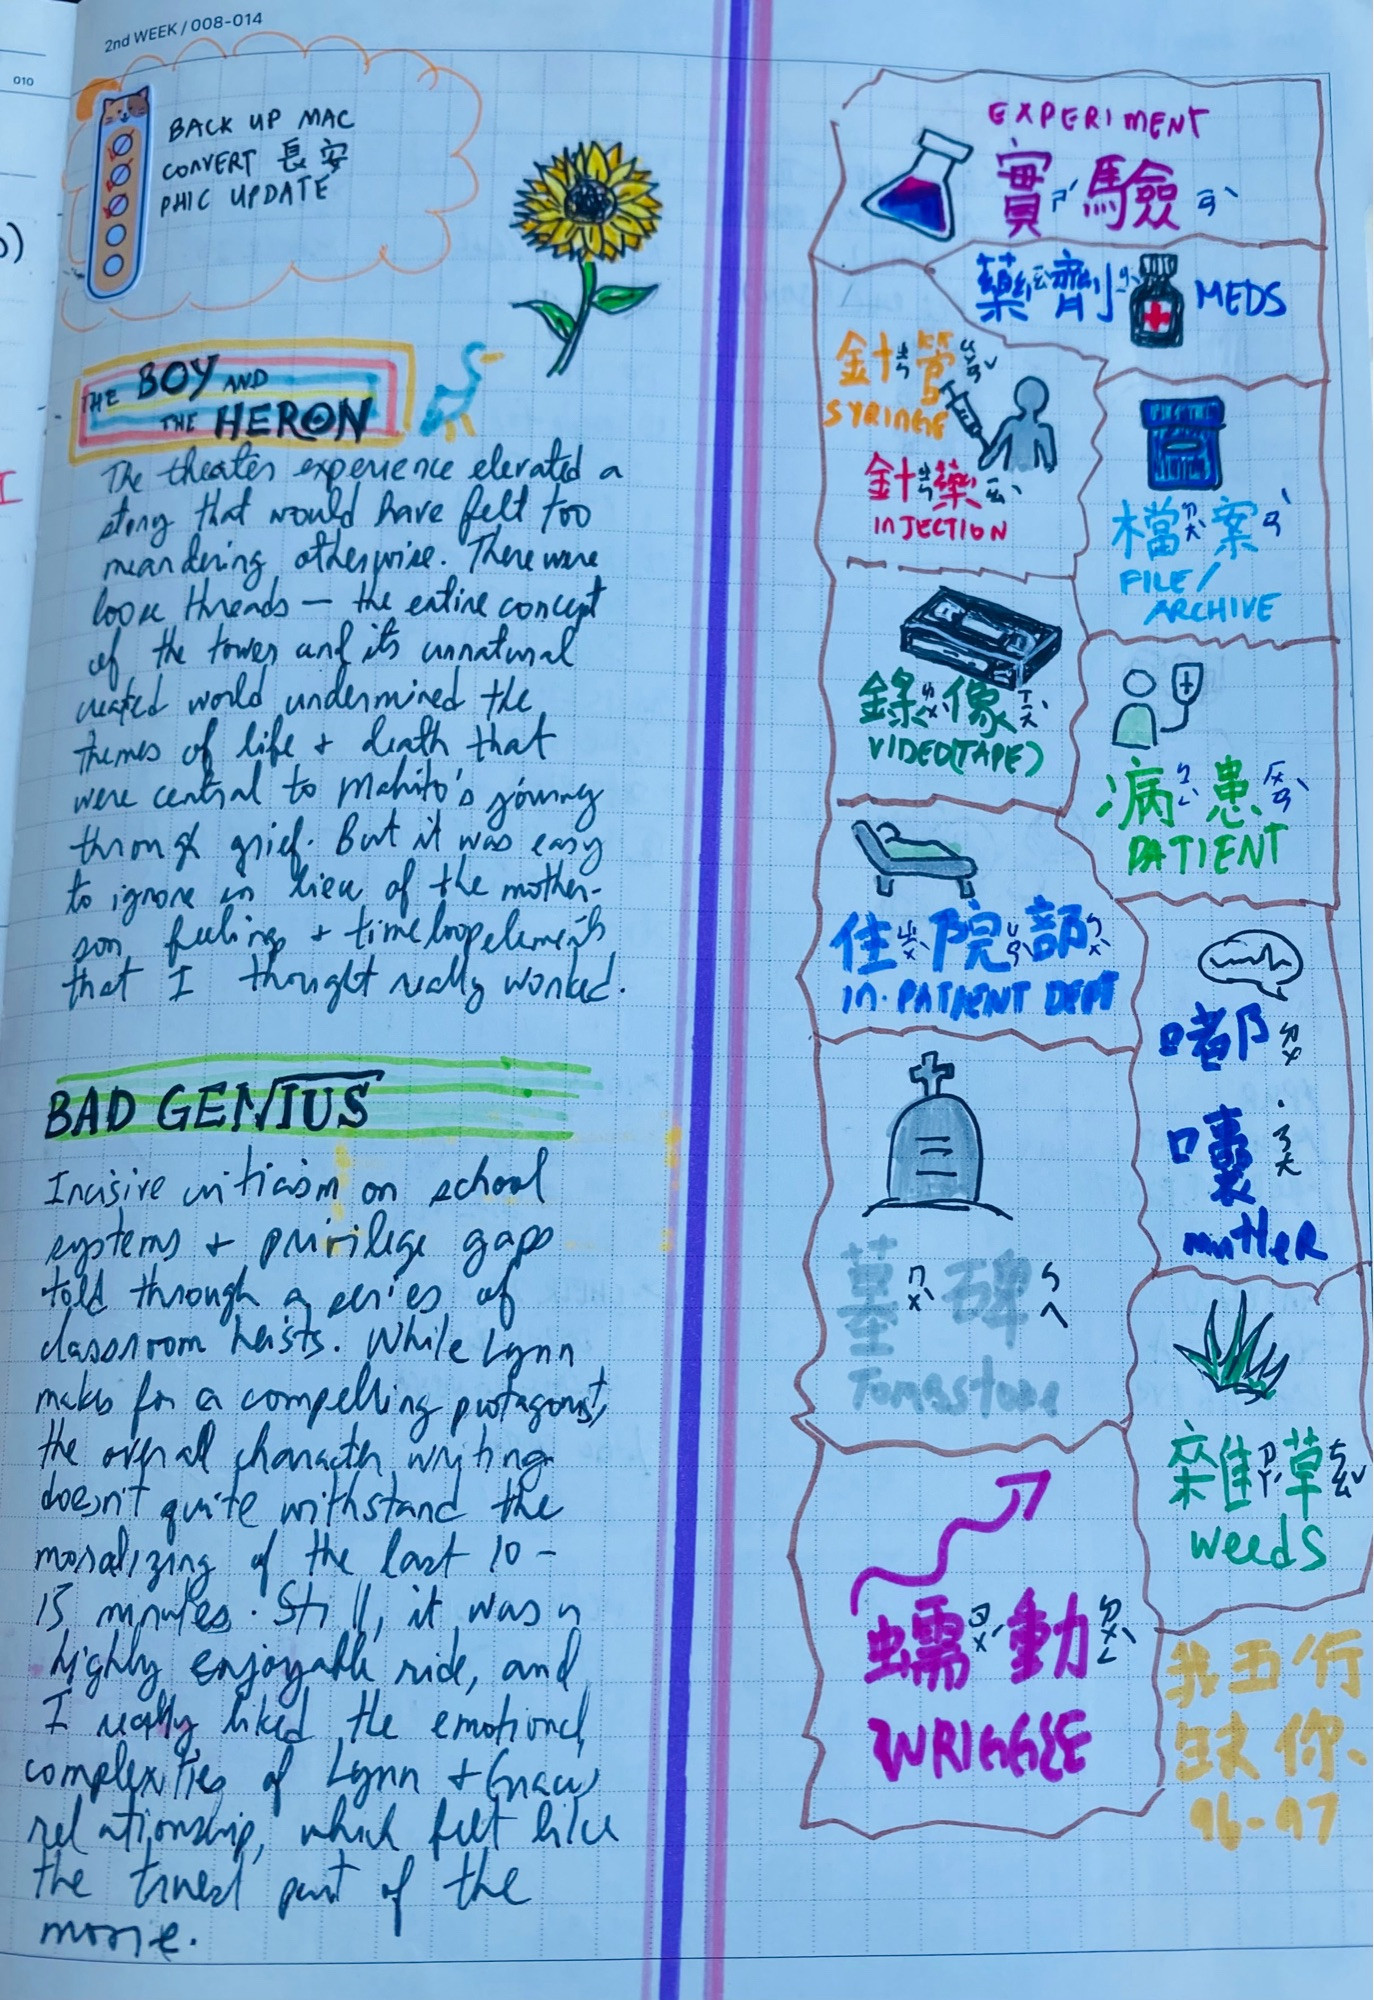 2nd WEEK / 008-014
010
BACK UP MAC
CONVERT 長安
PHIC UPDATE
THE BOY AND
THE HERON
The theater experience elevated a
story that would have felt too
meandering otherwise. There were
loose threads — the entire concept
of the tower and its unnatural
created world undermined the
themes of life + death that
were central to Mahito's journey
through grief. But it was easy
to ignore in lieu of the mother-
son feelings + timeloop elements
that I thought really worked.
BAD GENIUS
Incisive criticism on school
systems + privilege gaps
told through a series of
classroom heists. While Lynn
makes for a compelling protagonist,
the overall character writing
doesn't quite withstand the
moralizing of the last 10-
15 minutes. Still, it was a
highly enjoyable ride, and
I really liked the emotional
complexities of Lynn +
relationship, which felt like
the truest part of the
movie.
EXPERIMENT
實ㄕˊ驗ㄢˋ
藥ㄧㄠˋ劑ㄐㄧˋ MEDS
針ㄓㄣ管ㄍㄨㄢˇ
SYRINGE
針ㄓㄣ藥ㄧㄠˋ
INJECTION
檔ㄉㄤˋ案ㄢˋ
FILE /
ARCHIVE
錄ㄌㄨˋ像ㄒㄧㄤˋ
VIDEO(TAPE)
病ㄅㄧㄥˋ患ㄏㄨㄢˋ
PATIENT
住ㄓㄨˋ院ㄩㄢˋ部ㄅㄨˋ
IN-PATIENT DEPT
嘟ㄉㄨ
囔˙ㄋㄤ
mutteR
墓ㄇㄨˋ碑ㄅㄟ
Tombstone
雜ㄗㄚˊ草ㄘㄠˇ
weedS
蠕ㄖㄨˊ動ㄉㄨㄥˋ
WRIGGLE
我五行
缺你
96-97